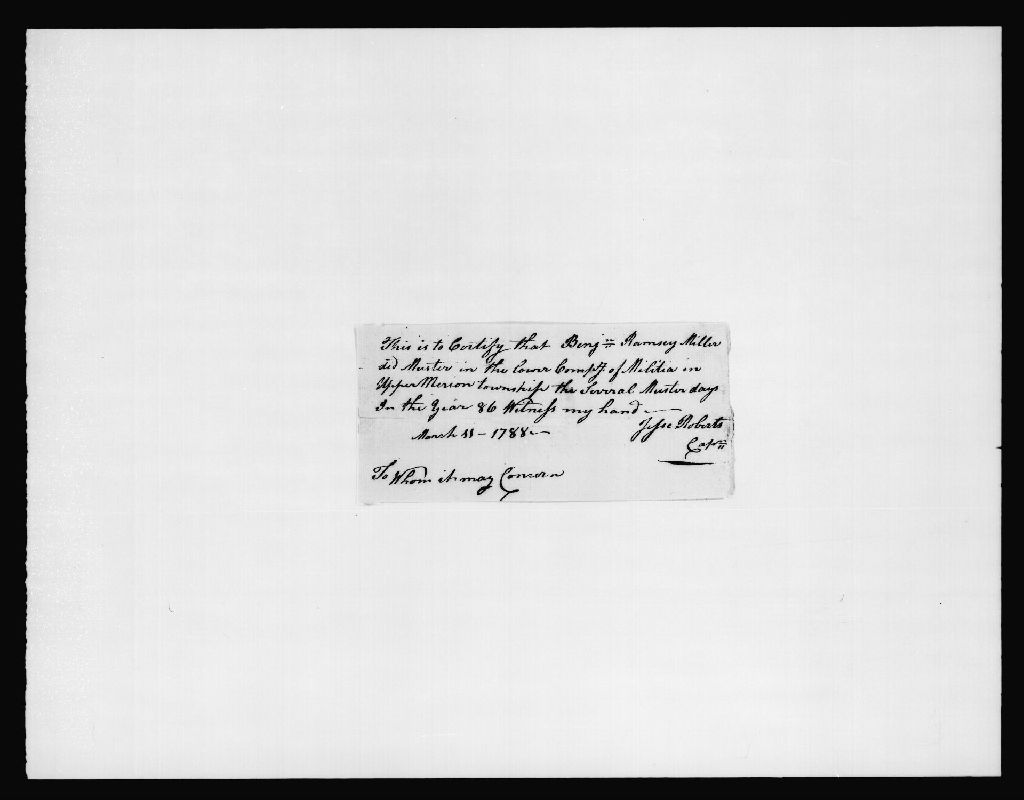 This is to Certify that Benjn Ramsey Miller
did Muster in the lower Compy of Militia in
Upper Merion township the Several Muster days
In the Year 86 Witness my hand —
March 11 - 1788 — Jesse Roberts
Capn
To Whom it may Concern